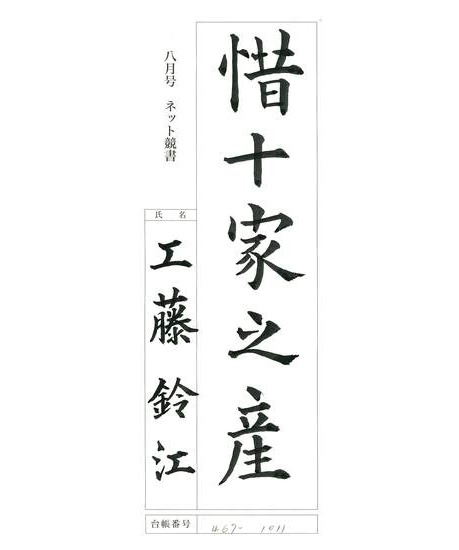 惜十家之産
八月号 ネット競書
氏名
工藤鈴江
台帳番号 467-1011